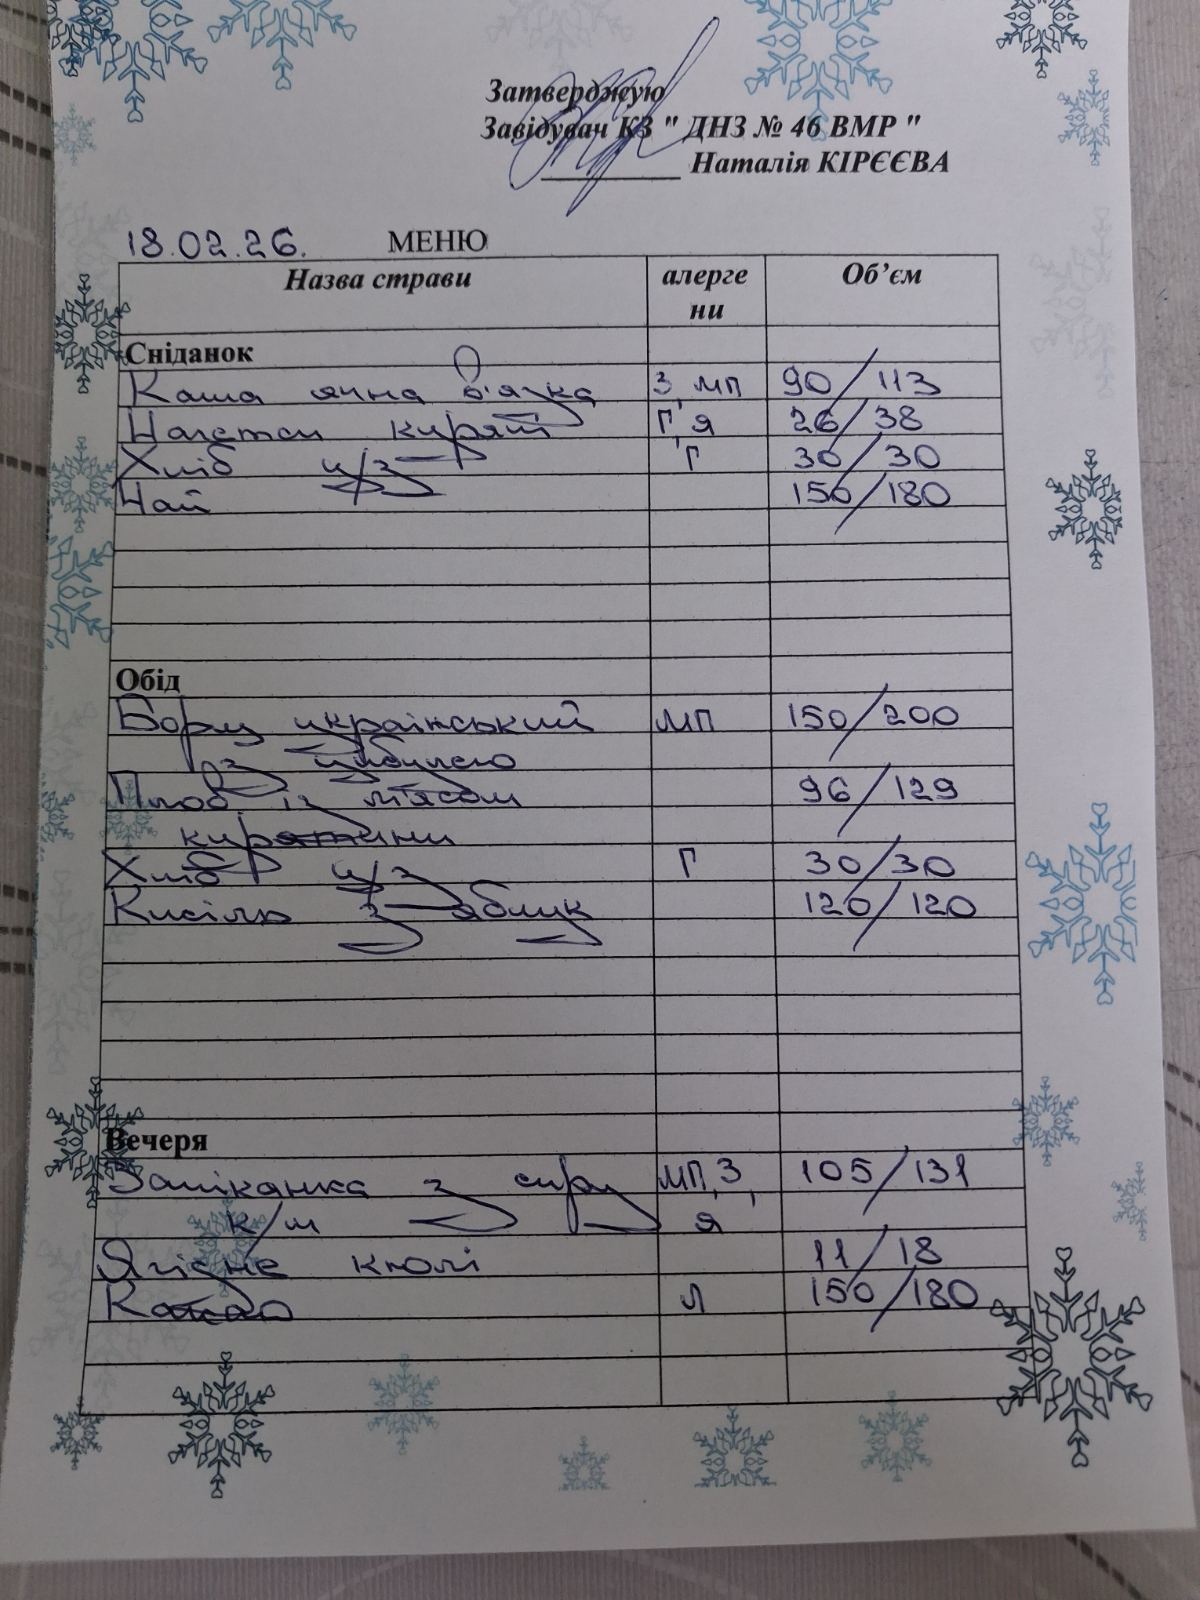 Затверджую
Завідувач КЗ " ДНЗ № 46 ВМР "
Наталія КІРЄЄВА
18.02.26. МЕНЮ
Назва страви алерге Об’єм
ни
Сніданок
Каша ячна в'язка З, МП 90/113
Нагетси курячі Г, Я 26/38
Хліб ц/з Г 30/30
Чай 150/180
Обід
Борщ український МП 150/200
з цибулею
Плов із м'ясом 96/129
курятини
Хліб ц/з Г 30/30
Кисіль з яблук 120/120
Вечеря
Запіканка з сиру МП, З, 105/131
к/м Я
Ягідне кюлі 11/18
Какао Л 150/180